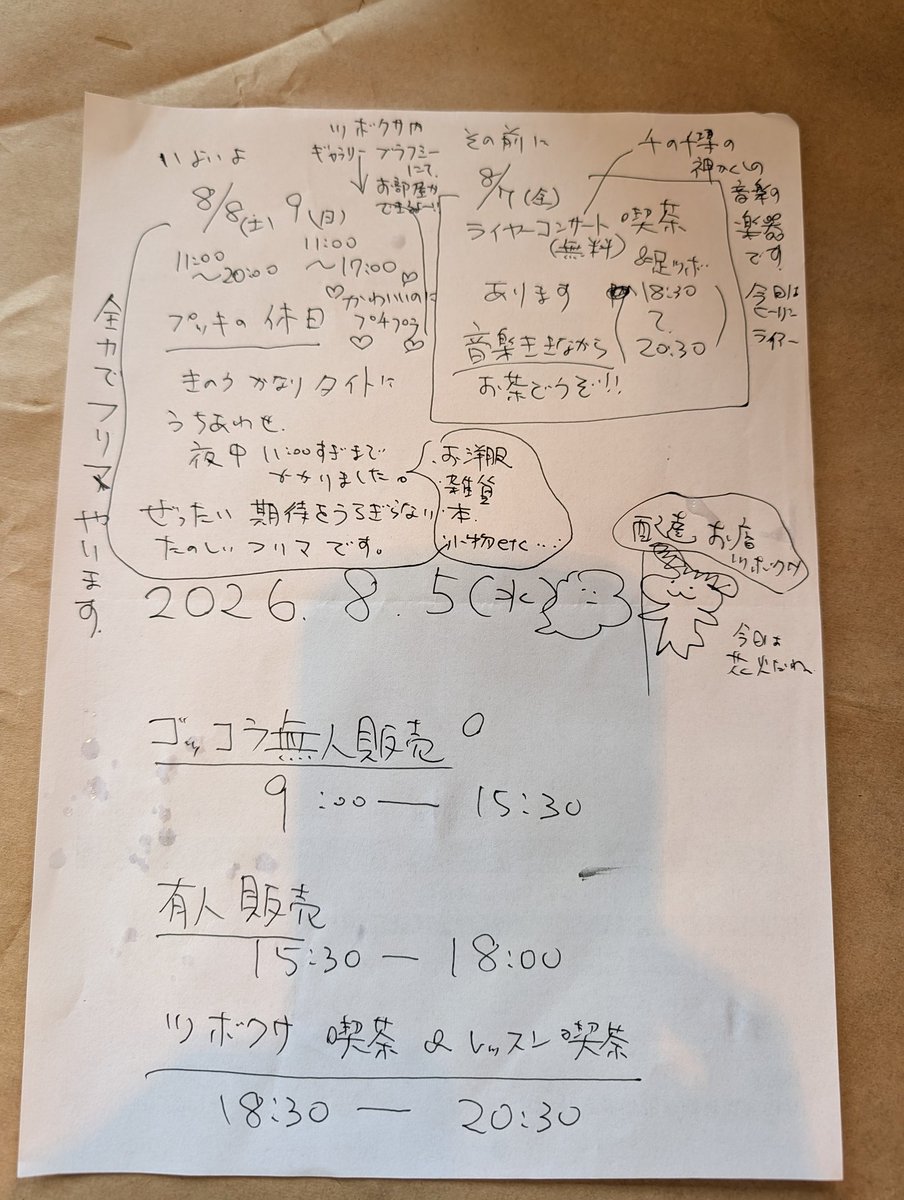 いよいよ
8/8(土) 9(日)
11:00
～20:00
11:00
～17:00
ツボクサ内
ギャラリー プラフミー
にて。
お部屋が
できるよ〜!!
プッキの休日
♡かわいいのに
プチプラ
♡ ♡
きのう かなり タイトに
うちあわせ。
夜中 11:00すぎまで
かかりました。
ぜったい 期待をうらぎらない
たのしい フリマ です。
・お洋服
・雑貨
・本
・小物etc…
全力でフリマやります。
その前に
8/7(金)
ライヤーコンサート
(無料)
喫茶
&足ツボ
あります
18:30
て
20:30
音楽ききながら
お茶どうぞ!!
千と千尋の
神かくしの
音楽の
楽器
です。
今日は
ライアー
2026. 8. 5(水)
配達 お店
ツボクサ
今日は
花火だね〜
ゴッコラ無人販売
9:00 ― 15:30
有人販売
15:30 ― 18:00
ツボクサ 喫茶 & レッスン喫茶
18:30 ― 20:30